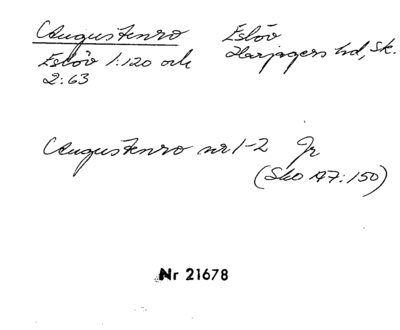 Augustenro Eslöv
Eslöv 1:120 och Harjagers hd, Sk.
2:63
Augustenro nr 1-2 Jr
(Sko A7:150)
Nr 21678